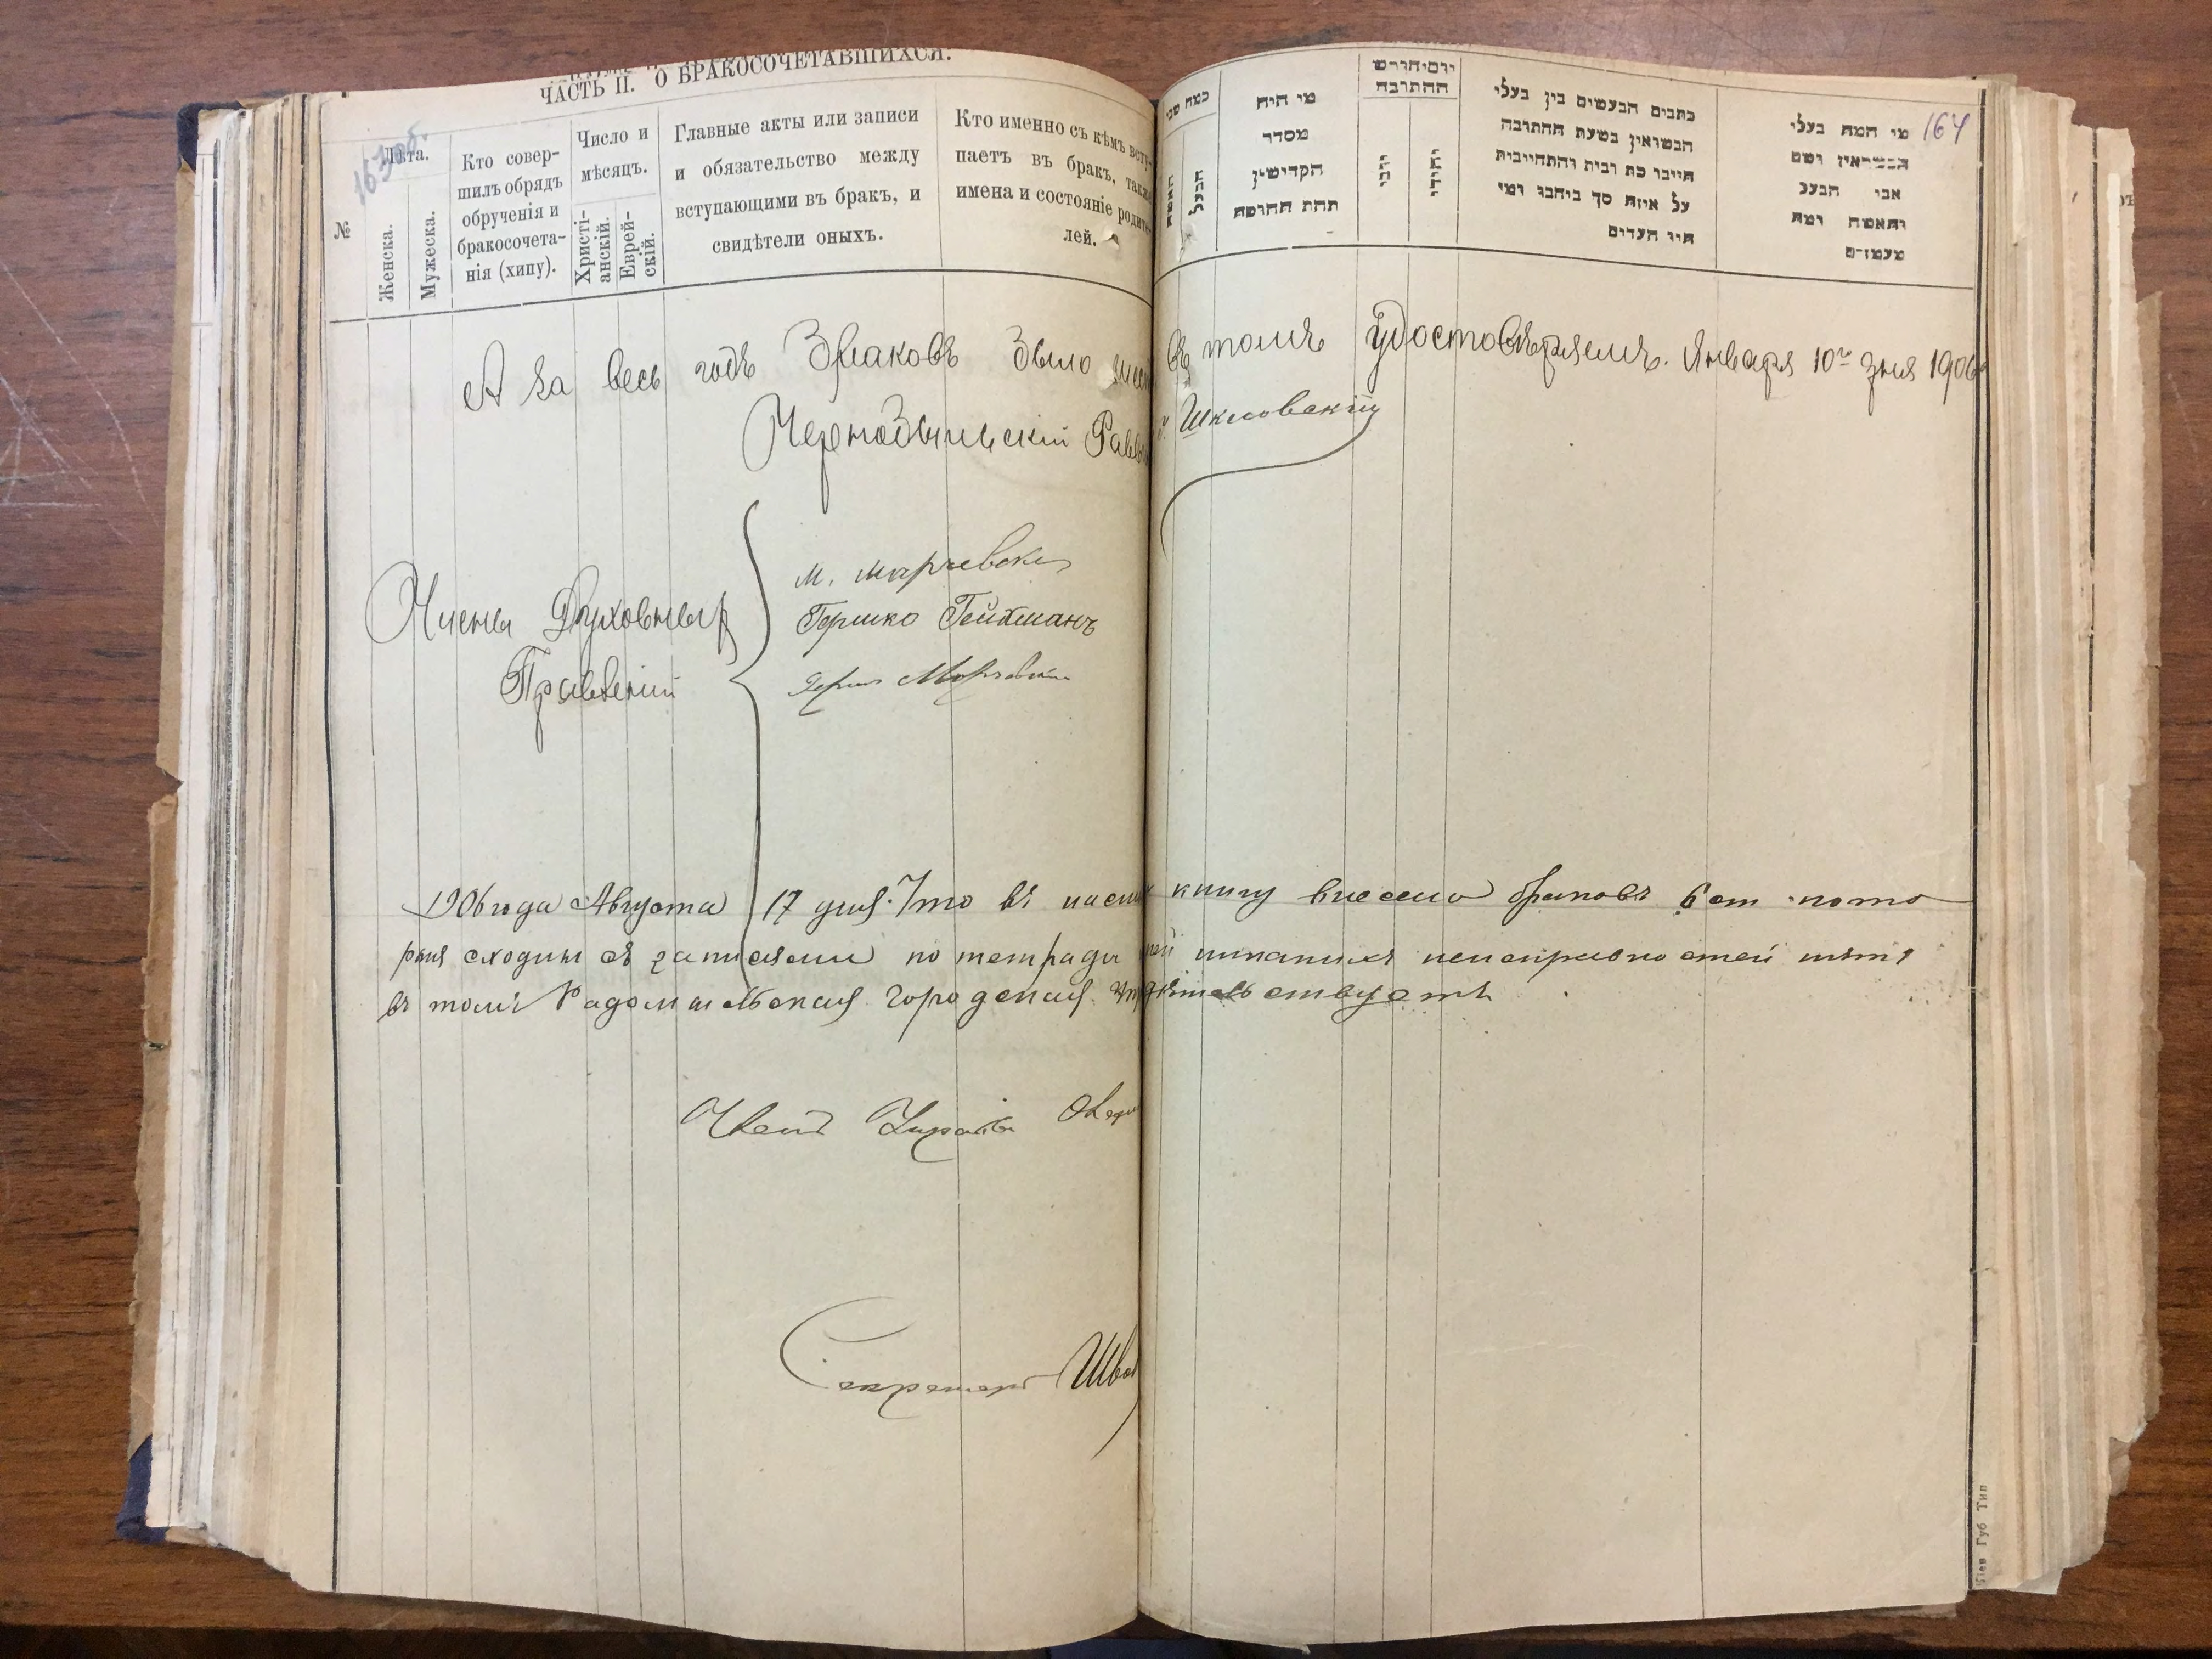 ЧАСТЬ II. О БРАКОСОЧЕТАВШИХСЯ.
163 об.
№
Лѣта.
Женска.
Мужеска.
Кто совер-
шилъ обрядъ
обрученія и
бракосочета-
нія (хипу).
Число и
мѣсяцъ.
Христі-
анскій.
Еврей-
скій.
Главные акты или записи
и обязательство между
вступающими въ бракъ, и
свидѣтели оныхъ.
Кто именно съ кѣмъ всту-
паетъ въ бракъ, также
имена и состояніе родите-
лей.
כמה שני
האשה
הבעל
מי היה
מסדר
הקדושין
תחת החופה
יום וחודש
החתונה
יוני
יהודי
כתבים הנעשים בין בעלי
הנשואין בשעת החתונה
חייבו כת ובית והתחייבות
על איזה סך ביחבו ומי
היו העדים
מי המה בעלי
הנשואין ושם
אבי הבעל
והאשה ומה
מעמדם
164
А за весь годъ браковъ было въ томъ удостовѣряемъ. Января 10го дня 1906
Чернобыльскій Равви Шкловскій
Члены Духовныхъ
Правленій
М. Марчевски
Гершко Гейхманъ
1906 года Августа 17 дня. Что въ книгу внесено браковъ 6 ст кото
рыя сходны съ записями по тетради никакихъ неисправностей нѣтъ
въ томъ Радомысльская Городская свидѣтельствуетъ
Членъ Управы
Секретарь Шва
Кіев Губ Тип